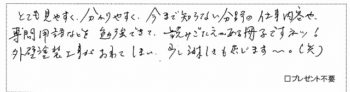 とても見やすく、分かりやすく、今まで知らない分野の仕事内容や、
専門用語などを勉強できて、読みごたえのある冊子ですネッ!
外壁塗装工事がおわってしまい、少し淋しくも感じます〜。(笑)
□プレゼント不要